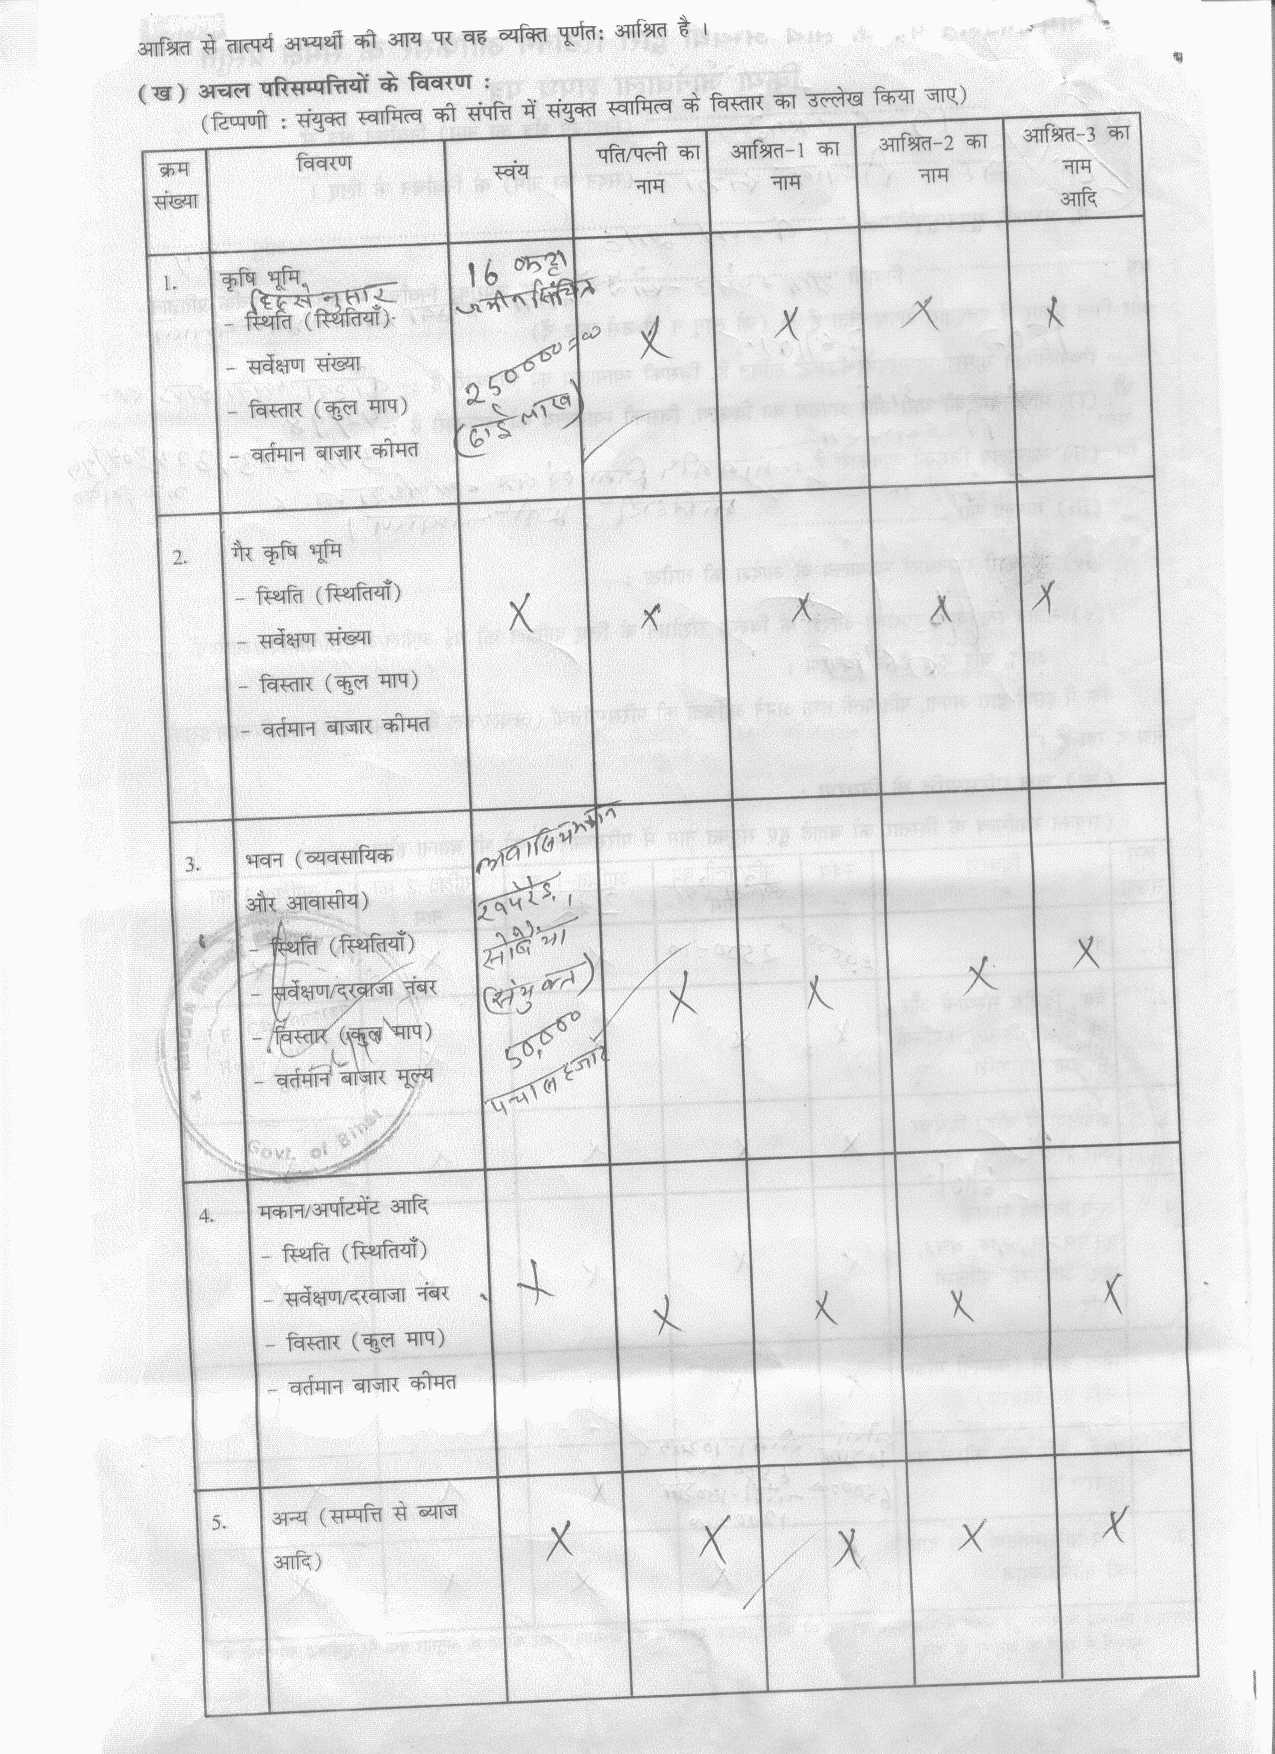 आश्रित से तात्पर्य अभ्यर्थी की आय पर वह व्यक्ति पूर्णत: आश्रित है ।
(ख) अचल परिसम्पत्तियों के विवरण :
(टिप्पणी : संयुक्त स्वामित्व की संपत्ति में संयुक्त स्वामित्व के विस्तार का उल्लेख किया जाए)
क्रम संख्या
विवरण
स्वंय
पति/पत्नी का नाम
आश्रित-1 का नाम
आश्रित-2 का नाम
आश्रित-3 का नाम आदि
1.
कृषि भूमि
(हिस्सेनुसार
- स्थिति (स्थितियाँ)
- सर्वेक्षण संख्या
- विस्तार (कुल माप)
- वर्तमान बाजार कीमत
16 कट्ठा
जमीन सिंचित
250000=00
(ढाई लाख)
X
X
X
X
2.
गैर कृषि भूमि
- स्थिति (स्थितियाँ)
- सर्वेक्षण संख्या
- विस्तार (कुल माप)
- वर्तमान बाजार कीमत
X
X
X
X
X
3.
भवन (व्यवसायिक
और आवासीय)
- स्थिति (स्थितियाँ)
- सर्वेक्षण/दरवाजा नंबर
- विस्तार (कुल माप)
- वर्तमान बाजार मूल्य
खपरैड़,
(संयुक्त)
50,000
पचास हजार
X
X
X
X
Govt. of Bihar
4.
मकान/अर्पाटमेंट आदि
- स्थिति (स्थितियाँ)
- सर्वेक्षण/दरवाजा नंबर
- विस्तार (कुल माप)
- वर्तमान बाजार कीमत
X
X
X
X
X
5.
अन्य (सम्पत्ति से ब्याज
आदि)
X
X
X
X
X